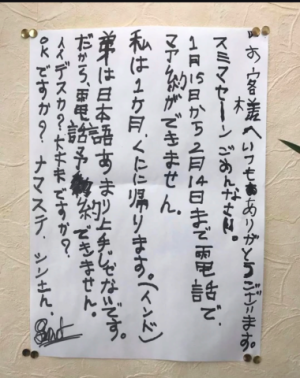 お客様へいつもありがとうございます。
スミマセーンごめんなさい。
1月15日から2月14日まで電話で、
予約ができません。
私は1ケ月、くにに帰ります。(インド)
弟は日本語あまり上手じゃないです。
だから、電話予約できません。
いいデスカ？大丈夫ですか？
OKですか？ナマステ、シンさん、